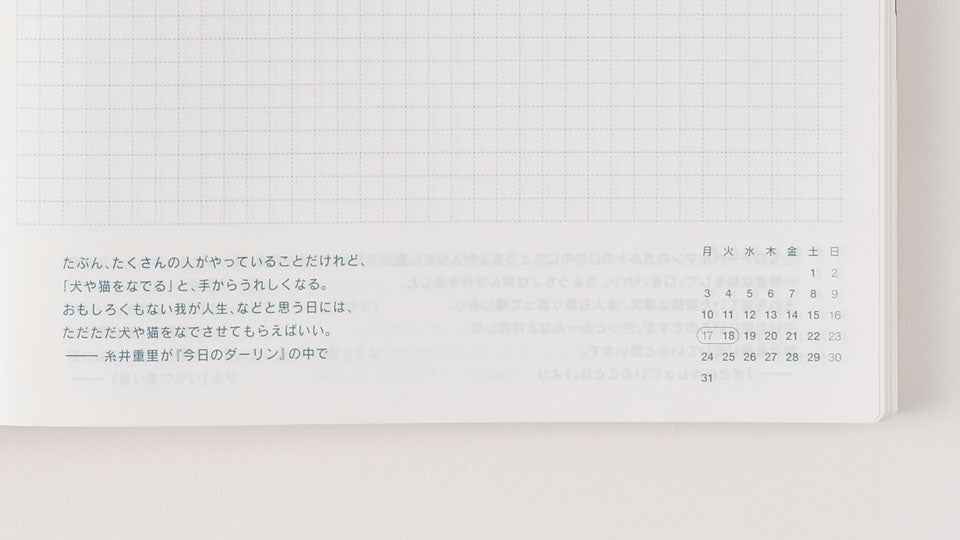 たぶん、たくさんの人がやっていることだけれど、
「犬や猫をなでる」と、手からうれしくなる。
おもしろくもない我が人生、などと思う日には、
ただただ犬や猫をなでさせてもらえばいい。
——糸井重里が『今日のダーリン』の中で
月 火 水 木 金 土 日
1 2
3 4 5 6 7 8 9
10 11 12 13 14 15 16
17 18 19 20 21 22 23
24 25 26 27 28 29 30
31